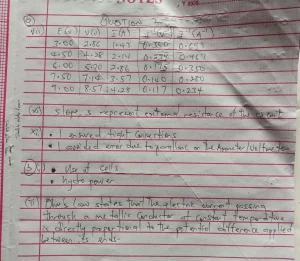 QUESTION
vii) E(v) V(v) I(A)
3.00 2.86 1.43 0.350 0.699
4.50 4.28 2.14
6.00 5.70 2.86 0.175 0.350
7.50 7.14 3.57 0.140 0.280
9.00 8.57 4.28 0.117 0.234
slope, s represent external resistance of the circuit
xi • I ensured tight connections
• I avoided error due to parallax on the Ammeter/Voltmeter
(b) • Use of cells
• hydro power
(ii) Ohm's law states that the electric current passing
through a metallic conductor at constant temperature
is directly proportional to the potential difference applied
between its ends.